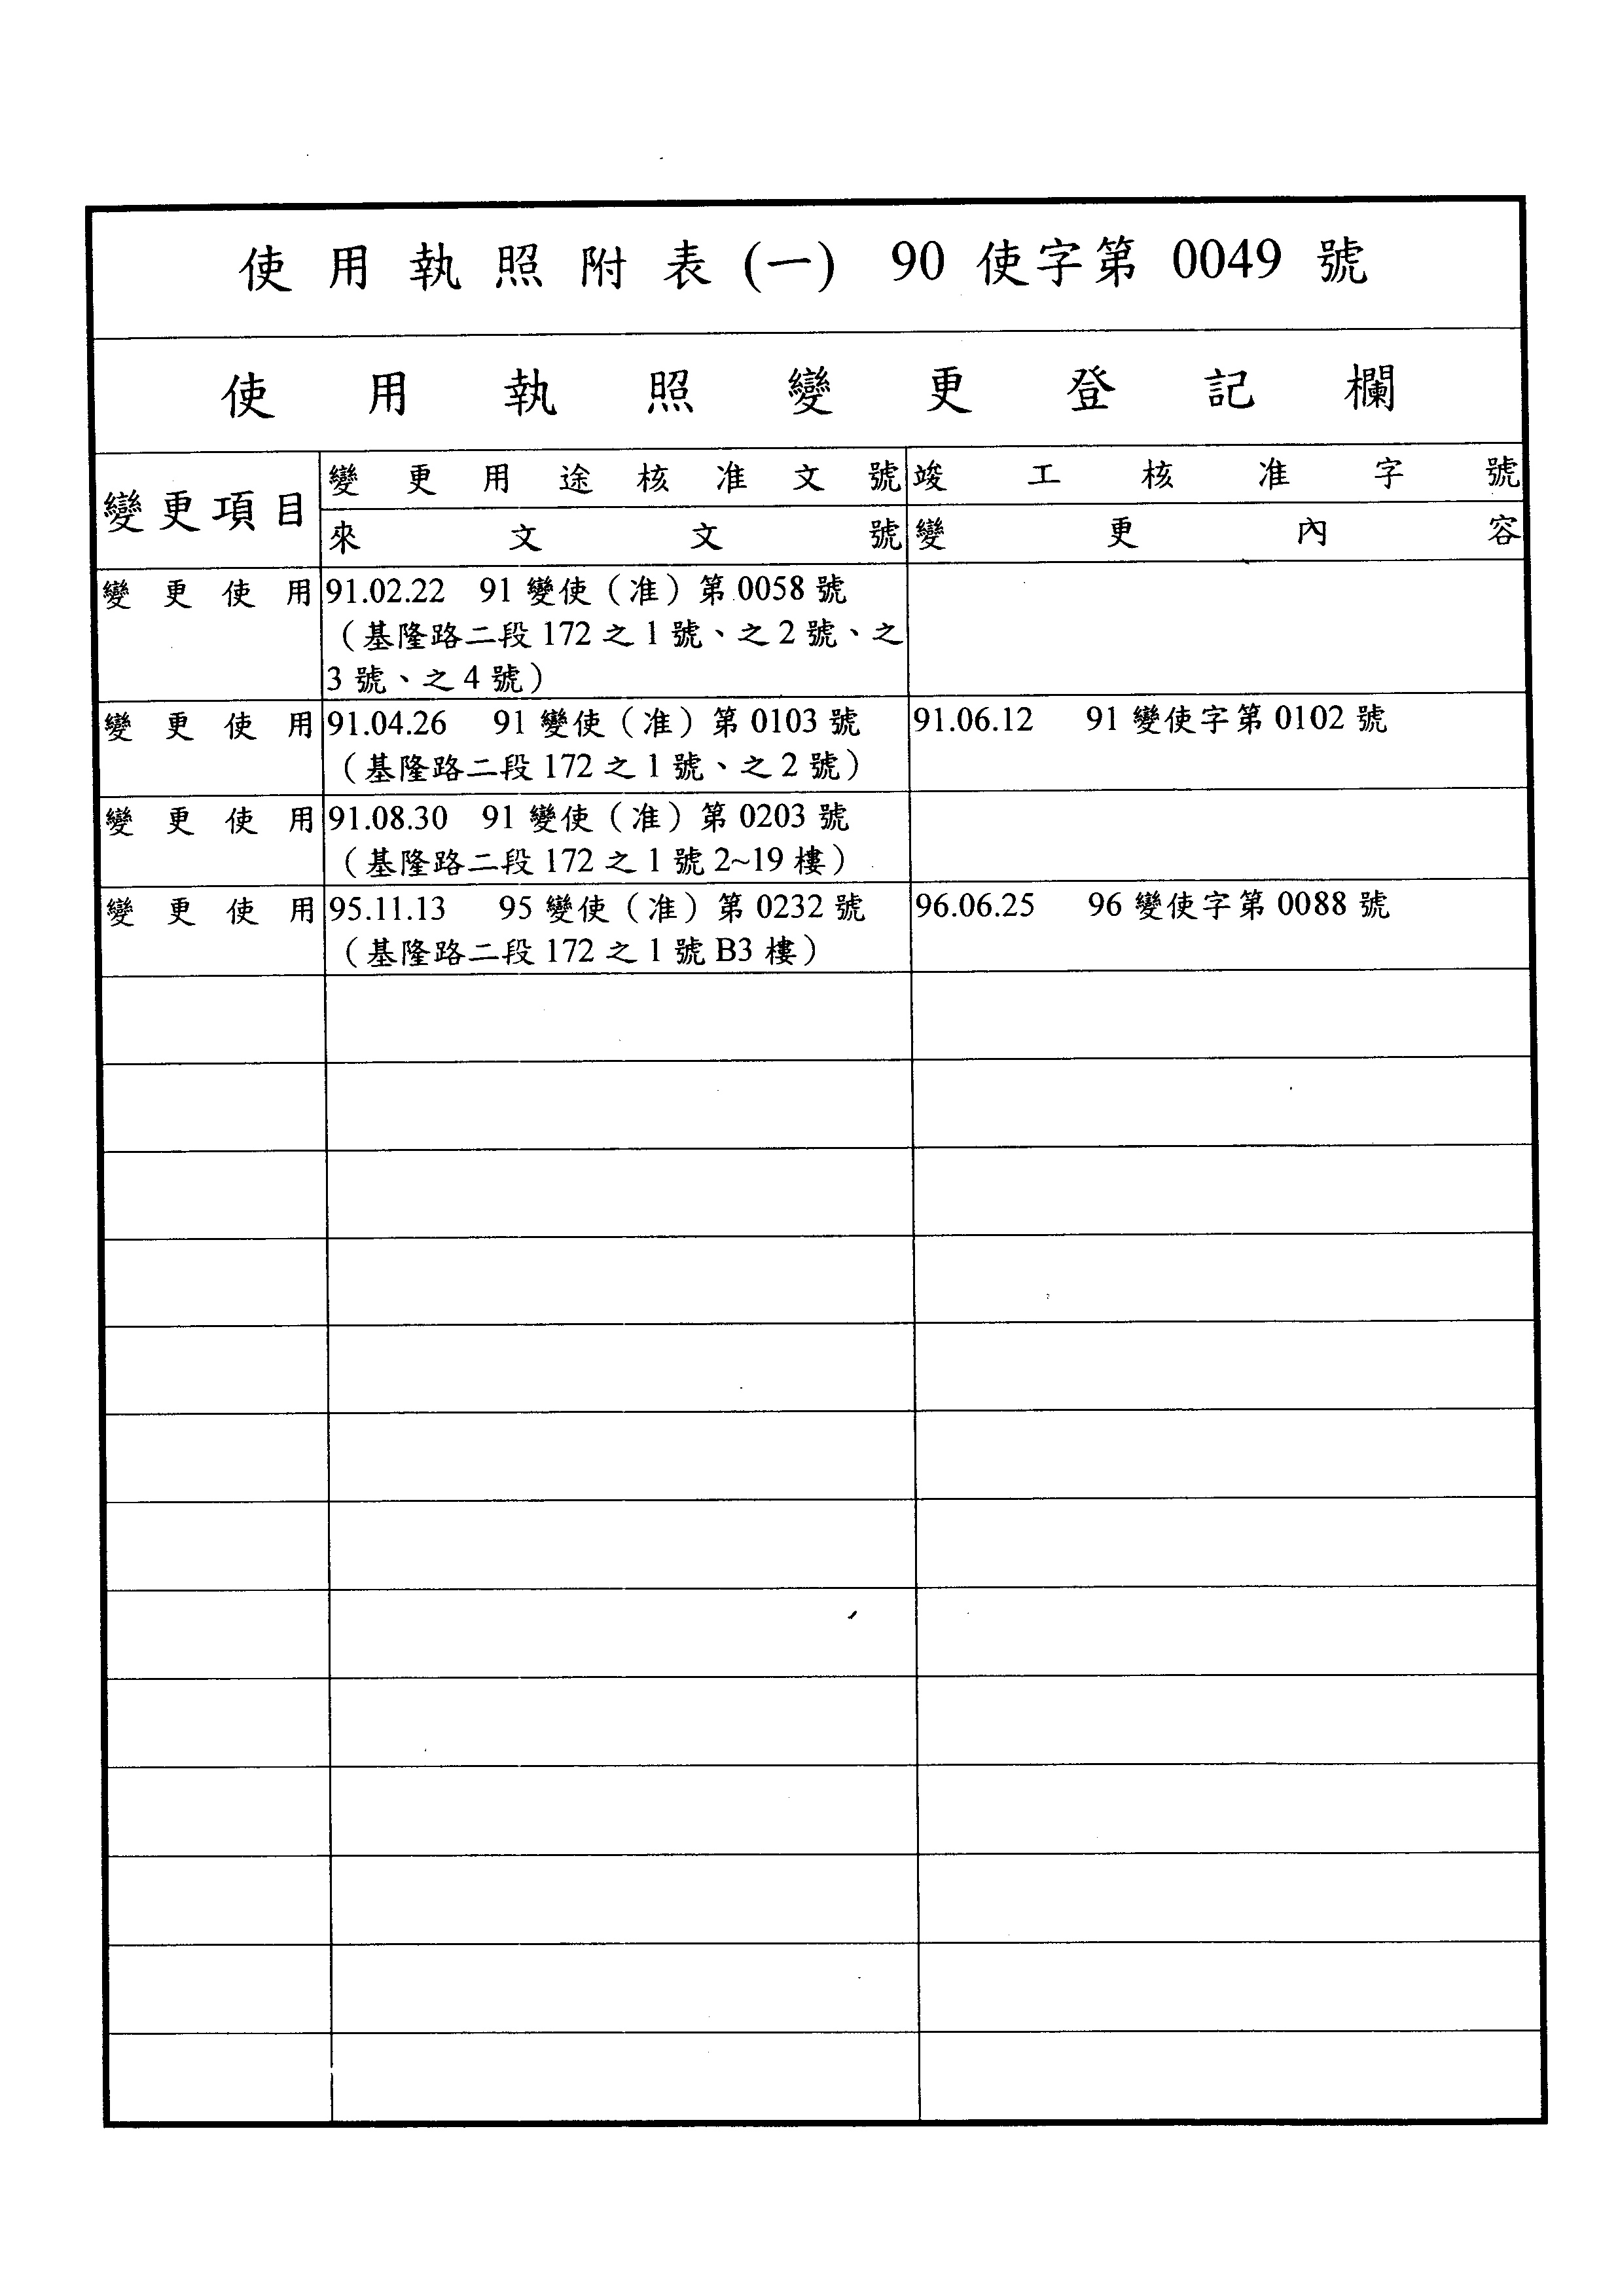 使用執照附表(一) 90 使字第 0049 號
使用執照變更登記欄
變更項目
變更用途核准文號
竣工核准字號
來文文號
變更內容
變更使用
91.02.22 91 變使（准）第 0058 號
（基隆路二段 172 之 1 號、之 2 號、之
3 號、之 4 號）
變更使用
91.04.26 91 變使（准）第 0103 號
（基隆路二段 172 之 1 號、之 2 號）
91.06.12 91 變使字第 0102 號
變更使用
91.08.30 91 變使（准）第 0203 號
（基隆路二段 172 之 1 號 2~19 樓）
變更使用
95.11.13 95 變使（准）第 0232 號
（基隆路二段 172 之 1 號 B3 樓）
96.06.25 96 變使字第 0088 號